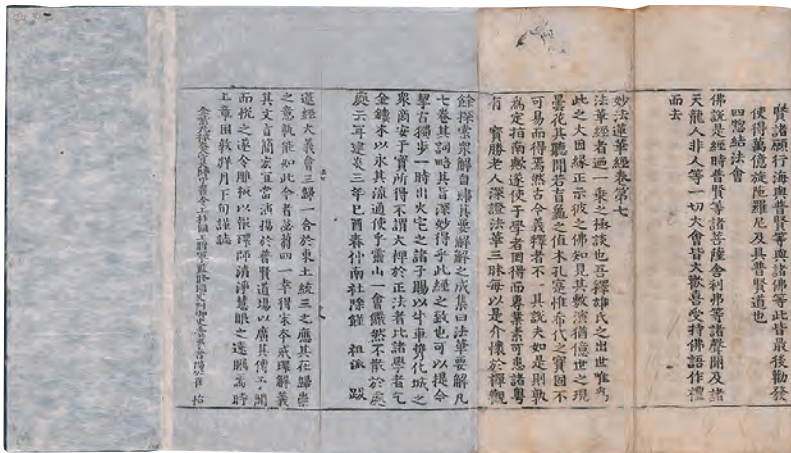 賢諸願行海與普賢等與諸佛等此皆最後勸發
使得萬億旋陁羅尼及具普賢道也
四惣結法會
佛說是經時普賢等諸菩薩舍利弗等諸聲聞及諸
天龍人非人等一切大會皆大歡喜受持佛語作禮
而去
妙法蓮華經卷第七
法華經者過一乗之極談也吾釋雄氏之出世唯為
此之大因緣正示彼之佛知見其敷演猶億世之現
曇花其聽聞若盲龜之值木孔寔惟希代之寶固不
可易而得焉然古今義釋者不一其說夫如是則孰
為定指南歟遂使于學者罔得而專業素可患諸粤
有 寶勝老人深證法華三昧每以是介懷於禪觀
餘探索衆解自肆其要解解之成集曰法華要解凡
七卷其詞略其旨深妙得乎此經之致也可以提令
擊古獨步一時出火宅之諸子賜以牛車導化城之
衆商安于寶所得不謂大桿於正法者比諸學者乞
金鏤木以永其流通使乎靈山一會儼然不散於處
處云耳建炎三年己酉春仲南社除饉 祖派 跋
蓮經大義會三歸一合於東土統三之應其在歸崇
之意孰能如此今者苾蒭四一幸得宋本戒環解義
其文言簡義宜當演揚於普賢道場以廣其傳予聞
而悅之遂令彫板以報環師清淨慧眼之遺囑焉時
上章困敦牂月下旬謹誌